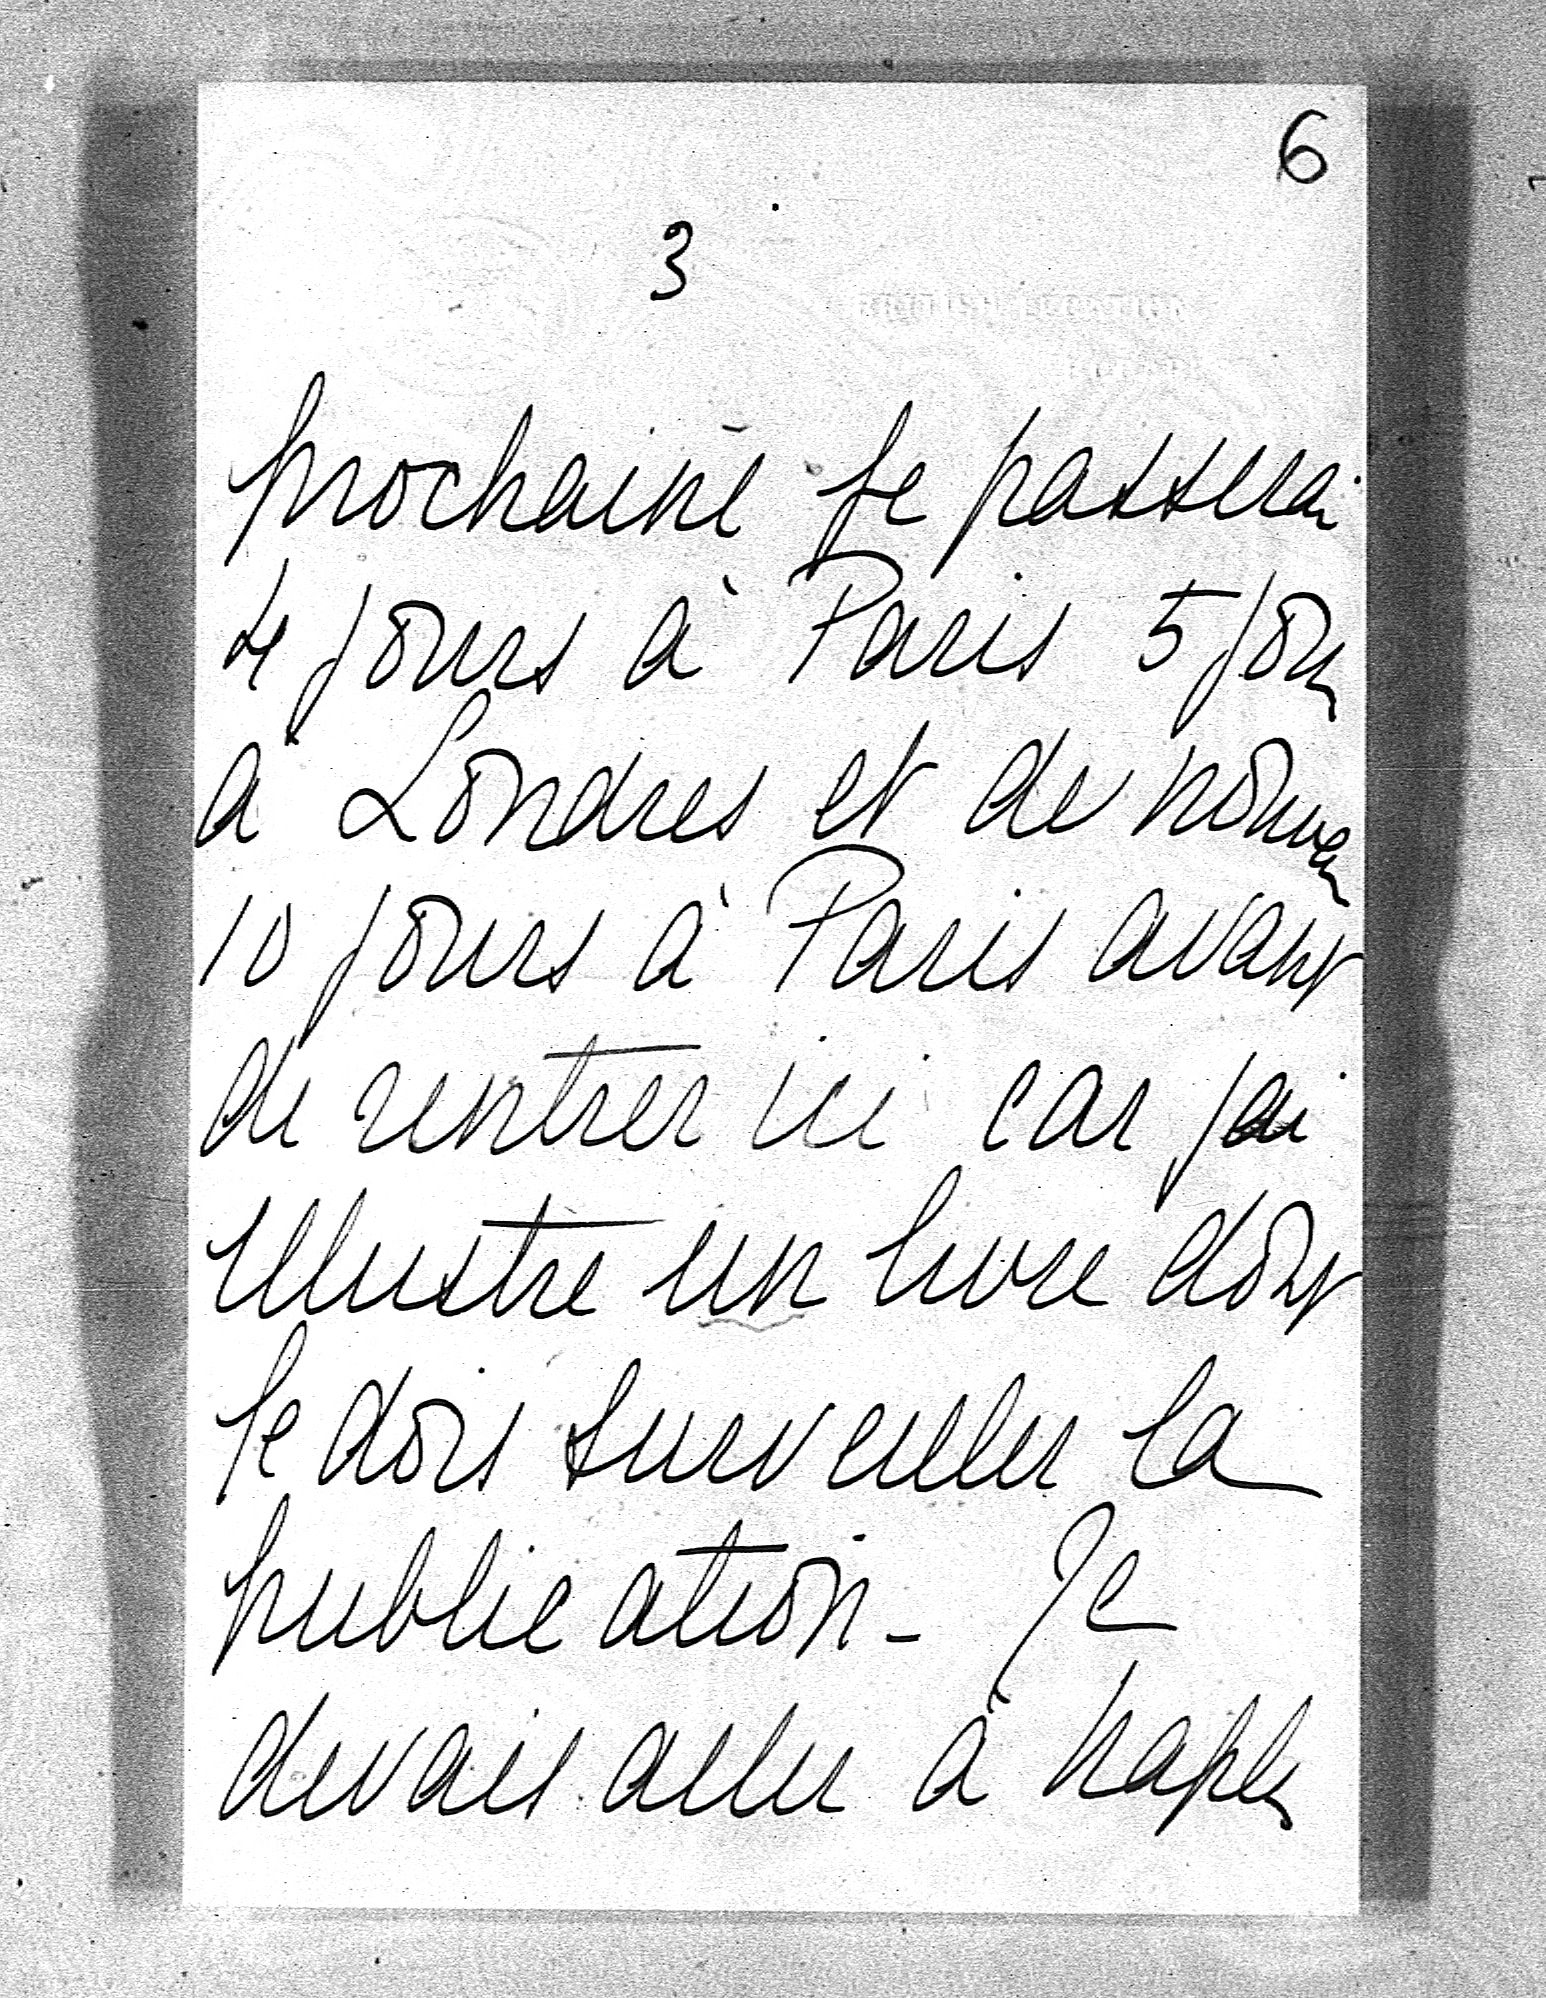 6
3
prochaine je passerai
4 jours à Paris 5 jours
à Londres et de nouveau
10 jours à Paris avant
de rentrer ici car j'ai
illustré un livre dont
je dois surveiller la
publication - Je
devais aller à Naples